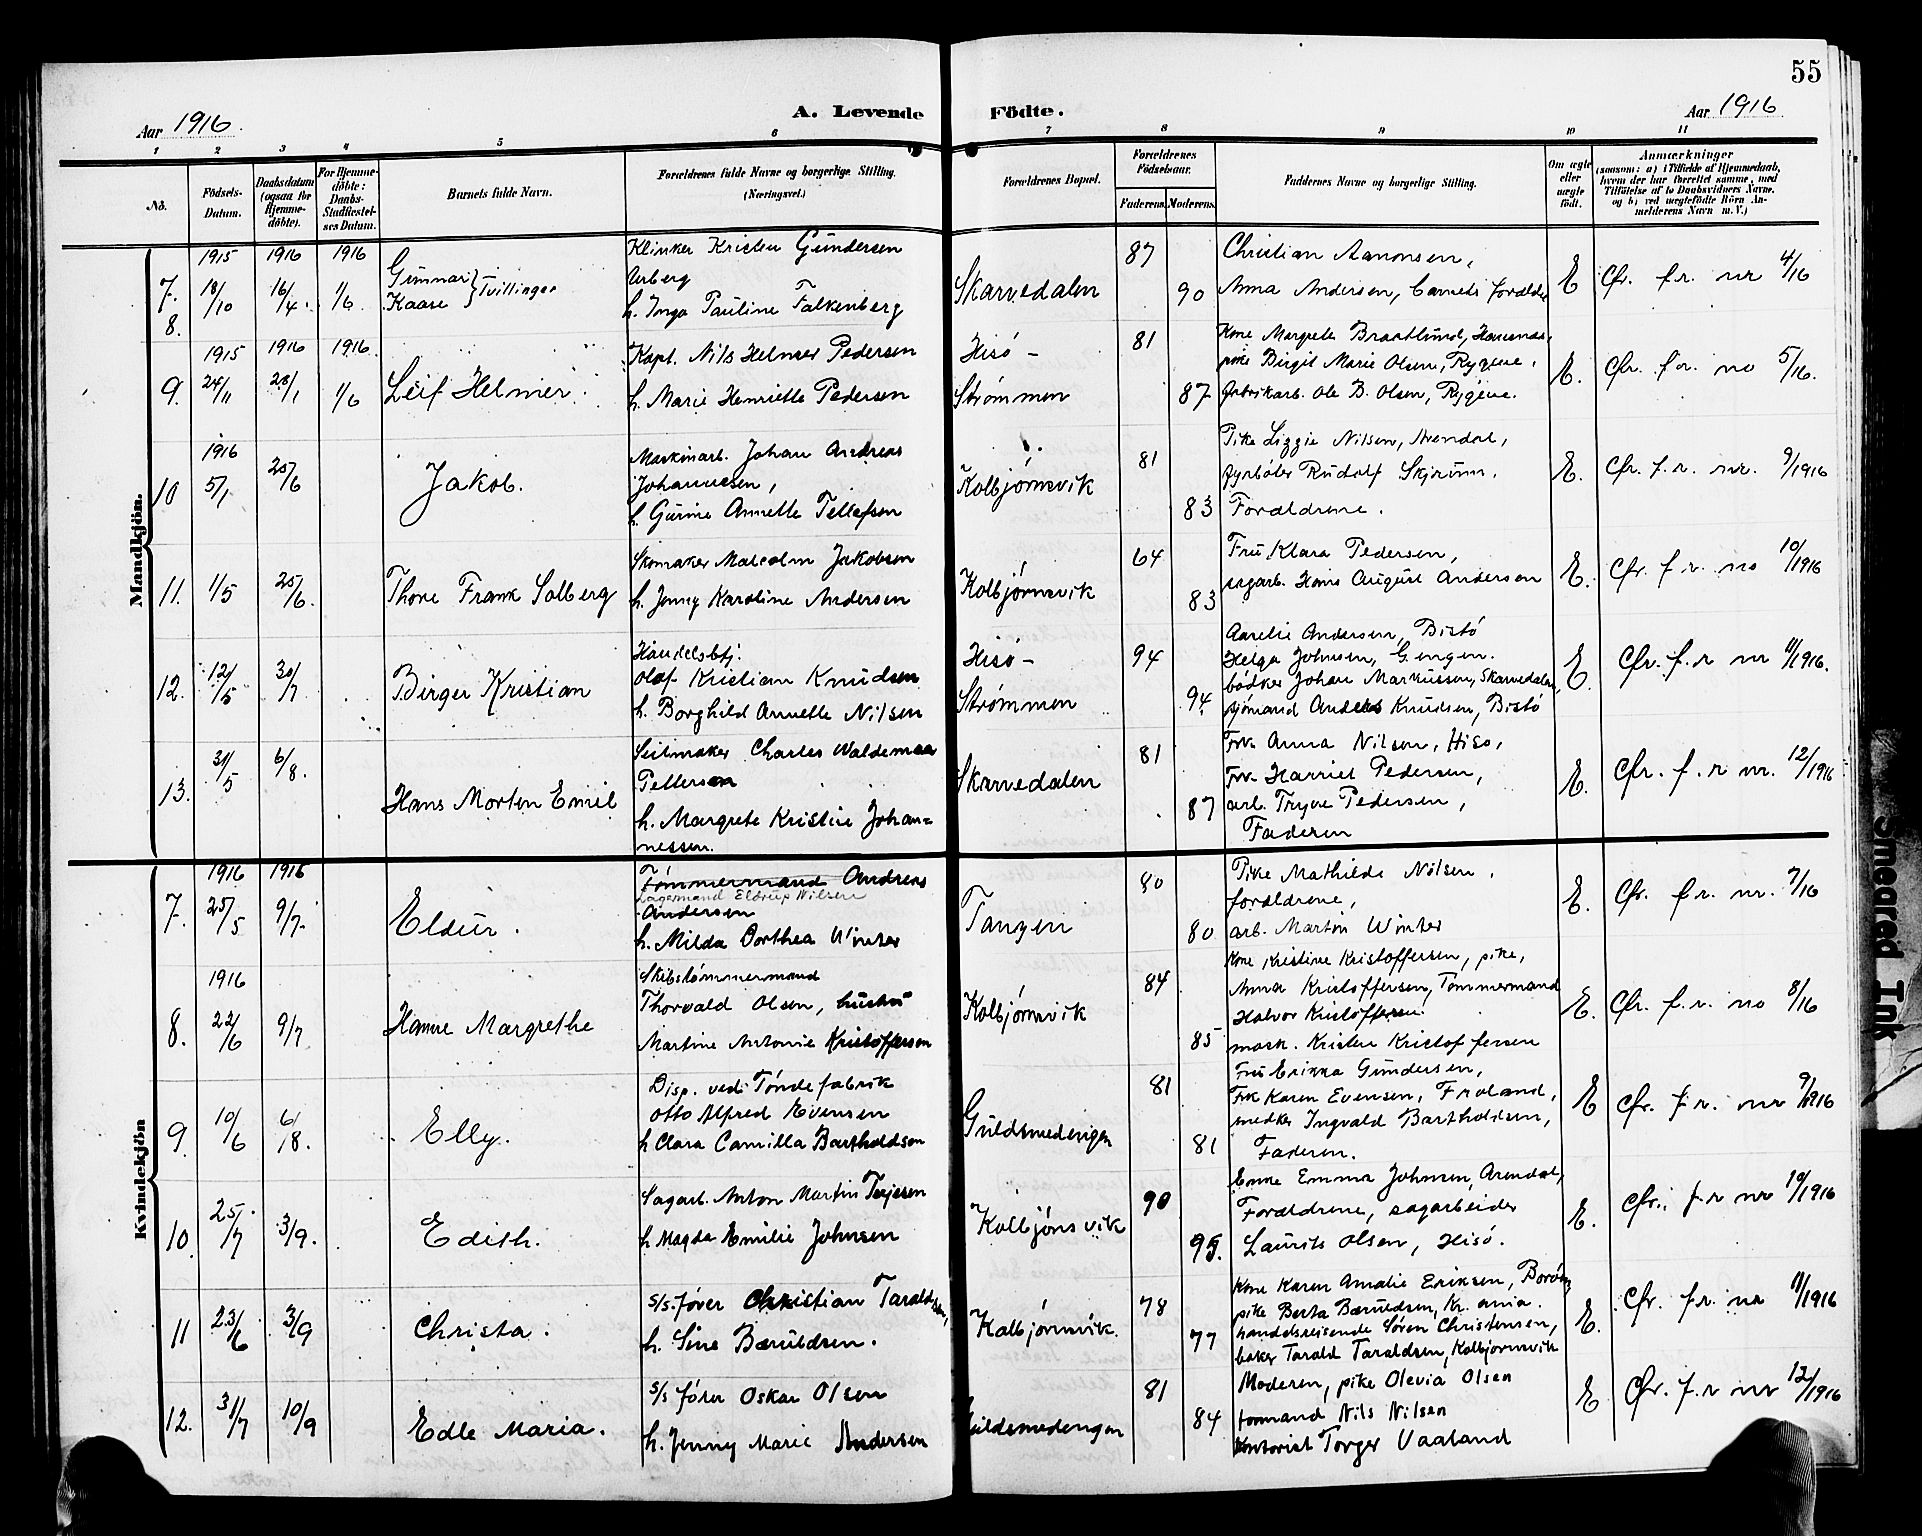 55
Aar 1916.
A. Levende Födte.
Aar 1916
1 2 3 4 5 6 7 8 9 10 11
No.
Födsels-Datum.
Daabsdatum (ogsaa for Hjemmedöbte).
For Hjemmedöbte: Daabs-Stadfæstelses Datum.
Barnets fulde Navn.
Forældrenes fulde Navne og borgerlige Stilling. (Næringsvei.)
Forældrenes Bopæl.
Forældrenes Födselsaar.
Faderens. Moderens.
Faddernes Navne og borgerlige Stilling.
Om ægte eller uægte födt.
Anmærkninger
(saasom: a) i Tilfælde af Hjemmedaab, hvem der har forrettet samme, med Tilföielse af to Daabsvidners Navne. og b) ved uægtefödte Börn Anmelderens Navn m. V.)
Mandkjön.
7. 8.
1915 18/10
1916 16/4.
1916 1/6
Gunnar
Kaare } Tvillinger
Klinker Kristen Gundersen
Aaberg
h. Inga Pauline Falkenberg
Skarvedalen
87
90
Christian Aanonsen,
Anna Andersen, barnets forældre
E
Cfr. f. r. nr 4/16
9.
1915 24/11
1916 23/1
1916. 1/6
Leif Helmer.
Kapt. Nils Helmer Pedersen
h. Marie Henriette Pedersen
Hisö-
Strømmen
81
87
Kone Margrete Braatlund,
pike Birgit Marie Olsen, Rygene,
fabrikarb. Ole B. Olsen, Rygene.
E.
Cfr. f. r. no 5/16.
10
1916 5/1
25/6
Jakob.
Maskinarb. Johan Andreas
Johannesen,
h. Gurine Annette Tellefsen
Kolbjørnsvik
81
83
Pike Lizzie Nilsen, Arendal,
fyrböter Rudolf Skjrium.
Forældrene.
E.
Cfr. f. r. nr. 9/1916
11.
1/5
25/6.
Thore Frank Solberg
Skomaker Malcolm Jakobsen
h. Jenny Karoline Andersen
Kolbjørnsvik
64
83
Fru Klara Pedersen,
sagarb. Hans August Andersen
E.
Cfr. f. r. no 10/1916
12.
12/5
30/7
Birger Kristian
Handelsbtj.
Olaf Kristian Knudsen
h. Borghild Annette Nilsen
Hisö-
Strømmen
94
94.
Aarelie Andersen, Bistö
Helga Johnsen, Gengen.
bödker Johan Markussen, Skarvedalen,
sjömand Anders Knudsen, Bistö
E.
Cfr. f. r nr 11/1916.
13.
31/5
6/8.
Hans Morten Emil
Seilmaker Charles Waldemar
Pettersen
h. Margrete Kristine Johan-
nessen.
Skarvedalen
81
87
Frk. Anna Nilsen, Hisö,
Frk. Harriet Pedersen,
arb. Tryve Pedersen,
Faderen
E.
Cfr. f. r nr. 12/1916
Kvindekjön
7.
1916 25/5
1916 9/7.
Eldur.
Tömmermand Andreas
Lagermand Eldrup Nilsen
Andersen
h. Milda Dorthea Winter
Tangen
80
80
Pike Mathilde Nilsen.
forældrene,
arb. Martin Winter
E.
Cfr. f. r. nr. 7/16
8.
1916 22/6
9/7
Hanne Margrethe
Skibstömmermand
Thorvald Olsen, hustru
Martine Antonie Kristoffersen
Kolbjørnsvik
84
85
Kone Kristine Kristoffersen, pike,
Anna Kristoffersen, Tömmermand
Halvor Kristoffersen
mask. Kristen Kristoffersen
E.
Cfr. f. r. no 8/16
9.
10/6
6/8.
Elly.
Disp. ved Töndefabrik
Otto Alfred Evensen
h Clara Camilla Bartholdsen
Guldsmedengen
81
81
Fru Erikka Gundersen,
Frk Karen Evensen, Froland,
smedker Ingvald Bartholdsen,
Faderen.
E
Cfr. f. r. nr 9/1916
10.
25/7
3/9.
Edith.
Sagarb. Anton Martin Terjesen
h Magda Emilie Johnsen
Kolbjönsvik
90
95.
Enke Emma Johnsen, Arendal,
Forældrene, sagarbeider
Laurits Olsen, Hisö.
E.
Cfr. f. r nr 10/1916
11
23/6
3/9
Christa.
s/s. förer Christian Taraldsen,
h. Sine Bæruldsen.
Kolbjørnsvik.
78
77
Kone Karen Amalie Eriksen, Boröen
pike Berta Bæruldsen, Kr.ania.
handelsreisende Sören Christensen,
baker Tarald Taraldsen, Kolbjørnsvik
E.
Cfr. f. r. nr 11/1916
12.
31/7
10/9
Edle Maria.
s/s förer Oskar Olsen
h. Jenny Marie Andersen
Guldsmedengen
81
84
Moderen, pike Olevia Olsen
formand Nils Nilsen
Kontorist Torger Vaaland
E
Cfr. f. r nr 12/1916
Smeared Ink